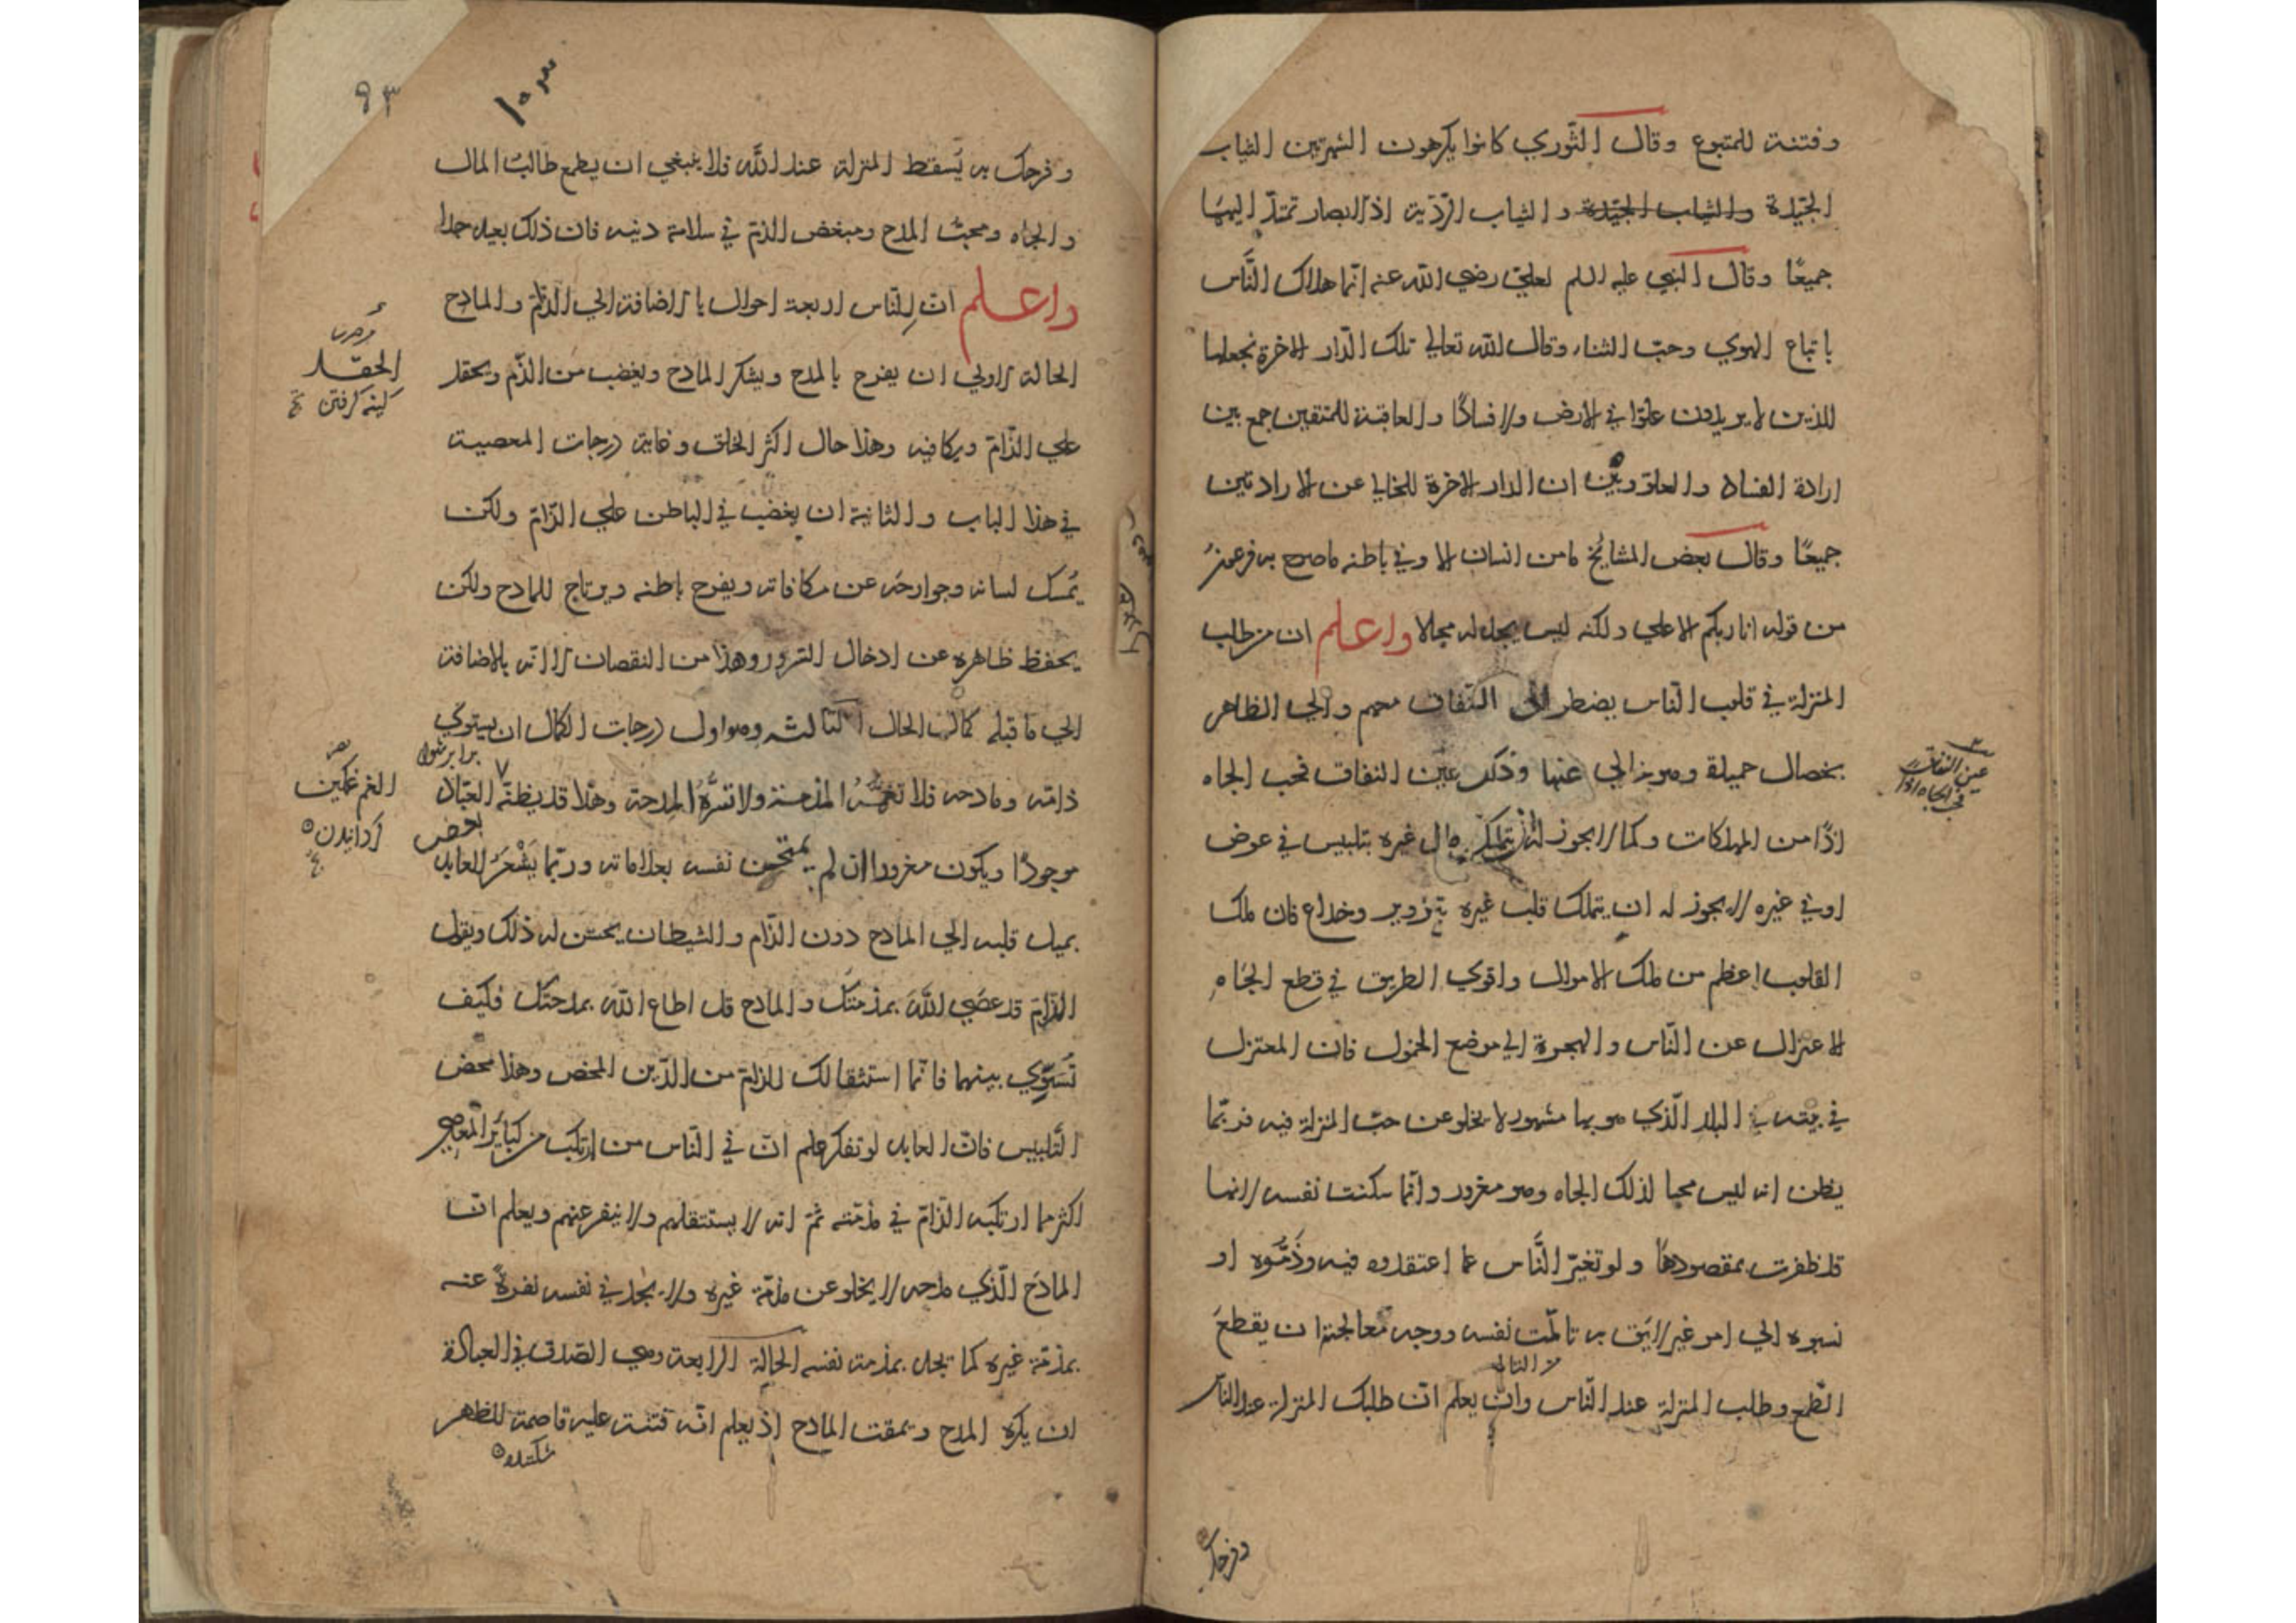 وفتنة للمتبوع وقال الثّوري كانوا يكرهون الشهرتين الثياب
الجيّدة والثياب الجيّدة والثياب الرّديّة اذ الابصار تمتدّ اليهما
جميعًا وقال النبي عليه السلم لعليّ رضي الله عنه انّما هلاك النَّاس
باتباع الهوي وحبّ الثناء وقال الله تعالي تلك الدّار الاخرة نجعلها
للذين لا يريدون علوّا في الارض ولا فسادًا والعاقبة للمتقين جمع بين
ارادة الفساد والعلوّ وبيّن ان الدار الاخرة للخالي عن الارادتين
جميعًا وقال بعض المشائخ ما من انسان الا وفي باطنه ما صرح به فرعون
من قوله انا ربكم الاعلي ولكنه ليس يجد له مجالا واعلم ان من طلب
المنزلة في قلوب النّاس يضطر الى النّفاق معهم والي الظاهر
بخصال حميدة وهو خالي عنها وذلك عين النفاق فحب الجاه
اذًا من المهلكات وكما لا يجوز ان يتملك مال غيره بتلبيس في عوض
او في غيره لا يجوز له ان يتملك قلب غيره بتزوير وخداع فان ملك
القلوب اعظم من ملك الاموال واقوي الطريق في قطع الجاه
الاعتزال عن النّاس والهجرة الي موضع الخمول فان المعتزل
في بيته في البلد الّذي هو بها مشهور لا يخلو عن حبّ المنزلة فيه فربّما
يظن انه ليس محبا لذلك الجاه وهو مغرور وانّما سكنت نفسه لانها
قد ظفرت بمقصودها ولو تغيّر النَّاس عما اعتقدوه فيه وذَمُّوه او
نسبوه الي امر غير لائق به تالّمت نفسه ووجه معالجته ان يقطع
الطّمع وطلب المنزلة عند النّاس وان يعلم انّ طلبك المنزلة عند الناس
عين النفاق
في الجاه اذا
وفرحك
٩٣
وفرحك به يُسقط المنزلة عند الله فلا ينبغي ان يطمع طالبُ المال
والجاه ومحبّ المدح ومبغض الذمّ في سلامة دينه فان ذلك بعيد جدا
واعلم انّ للنّاس اربعة احوال بالاضافة الي الذامّ والمادح
الحالة الاولي ان يفرح بالمدح ويشكر المادح ويغضب من الذّم ويحقد
علي الذّامّ ويكافيه وهذا حال اكثر الخلق وغاية درجات المعصية
في هذا الباب والثانية ان يغضب في الباطن علي الذّامّ ولكن
يُمسك لسانه وجوارحه عن مكافاته ويفرح باطنه ويرتاح للمادح ولكن
يحفظ ظاهره عن ادخال السّرور وهذا من النقصان الا انّه بالاضافة
الي ما قبله كمال الحال الثالثة وهو اول درجات الكمال ان يستوي
ذامّه ومادحه فلا تغمّه المذمّة ولا تسرُّه المدحة وهذا قد يظنّه بعض العبّاد
موجودًا ويكون مغرورا ان لم يمتحن نفسه بعلاماته وربّما يَشْعر العابد
بميل قلبه الي المادح دون الذّام والشيطان يحسّن له ذلك ويقول
الذّامّ قد عصَي اللهَ بمذمّتك والمادح قد اطاع الله بمدحتك فكيف
تُسَوّي بينهما فانّما استثقالك للذامّ من الدّين المحض وهذا محض
التّلبيس فانّ العابد لو تفكر علم انّ في النّاس من ارتكب من كبائر المعاصي
اكثر مما ارتكبه الذّامّ في مذمّته ثمّ انه لا يستثقلهم ولا ينفر عنهم ويعلم انّ
المادح الّذي مدحه لا يخلو عن مذمّة غيره ولا يجد في نفسه نفرةً عنه
بمذمّة غيره كما تجد بمذمة نفسه الحالة الرابعة وهي الصّدق في العبادة
ان يكره المدح ويمقت المادح اذ يعلم انّه فتنة عليه قاصمة للظهر
شكننده
الحقد
كينه گرفتن
برابر شود
الغم غمگين
گردانيدن